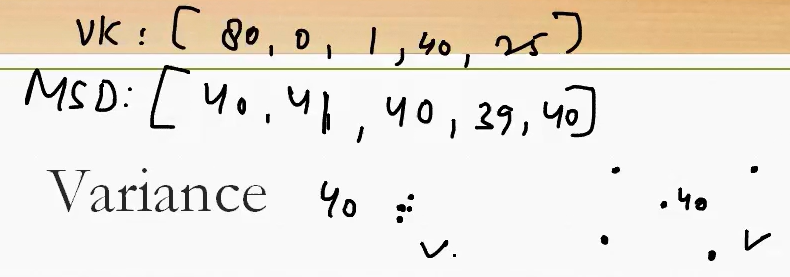 VK : [ 80, 0, 1, 40, 25 ]
MSD: [ 40, 41, 40, 39, 40 ]
Variance 40 .40
V. V